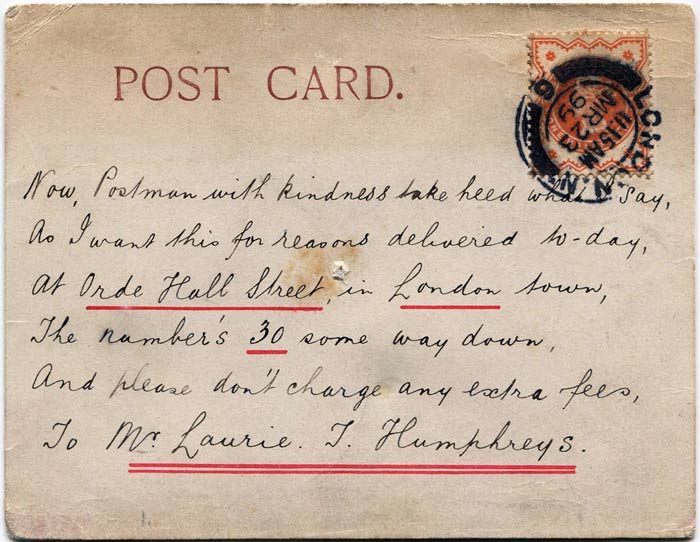 POST CARD.
LONDON N
9
11.15 AM
MR 23
95
Now, Postman with kindness take heed what I say,
As I want this for reasons delivered to-day,
At Orde Hall Street, in London town,
The number's 30 some way down,
And please don't charge any extra fees,
To Mr Laurie. T. Humphreys.